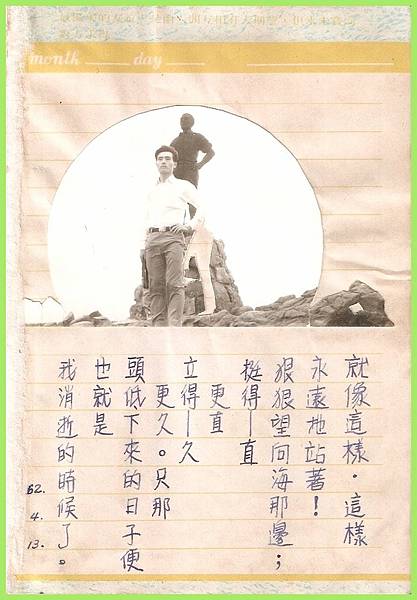 month day
就像這樣．這樣
永遠地站著！
狠狠望向海那邊；
挺得—直
更直
立得—久
更久。只那
頭低下來的日子便
也就是
我消逝的時候了。
62.
4.
13.